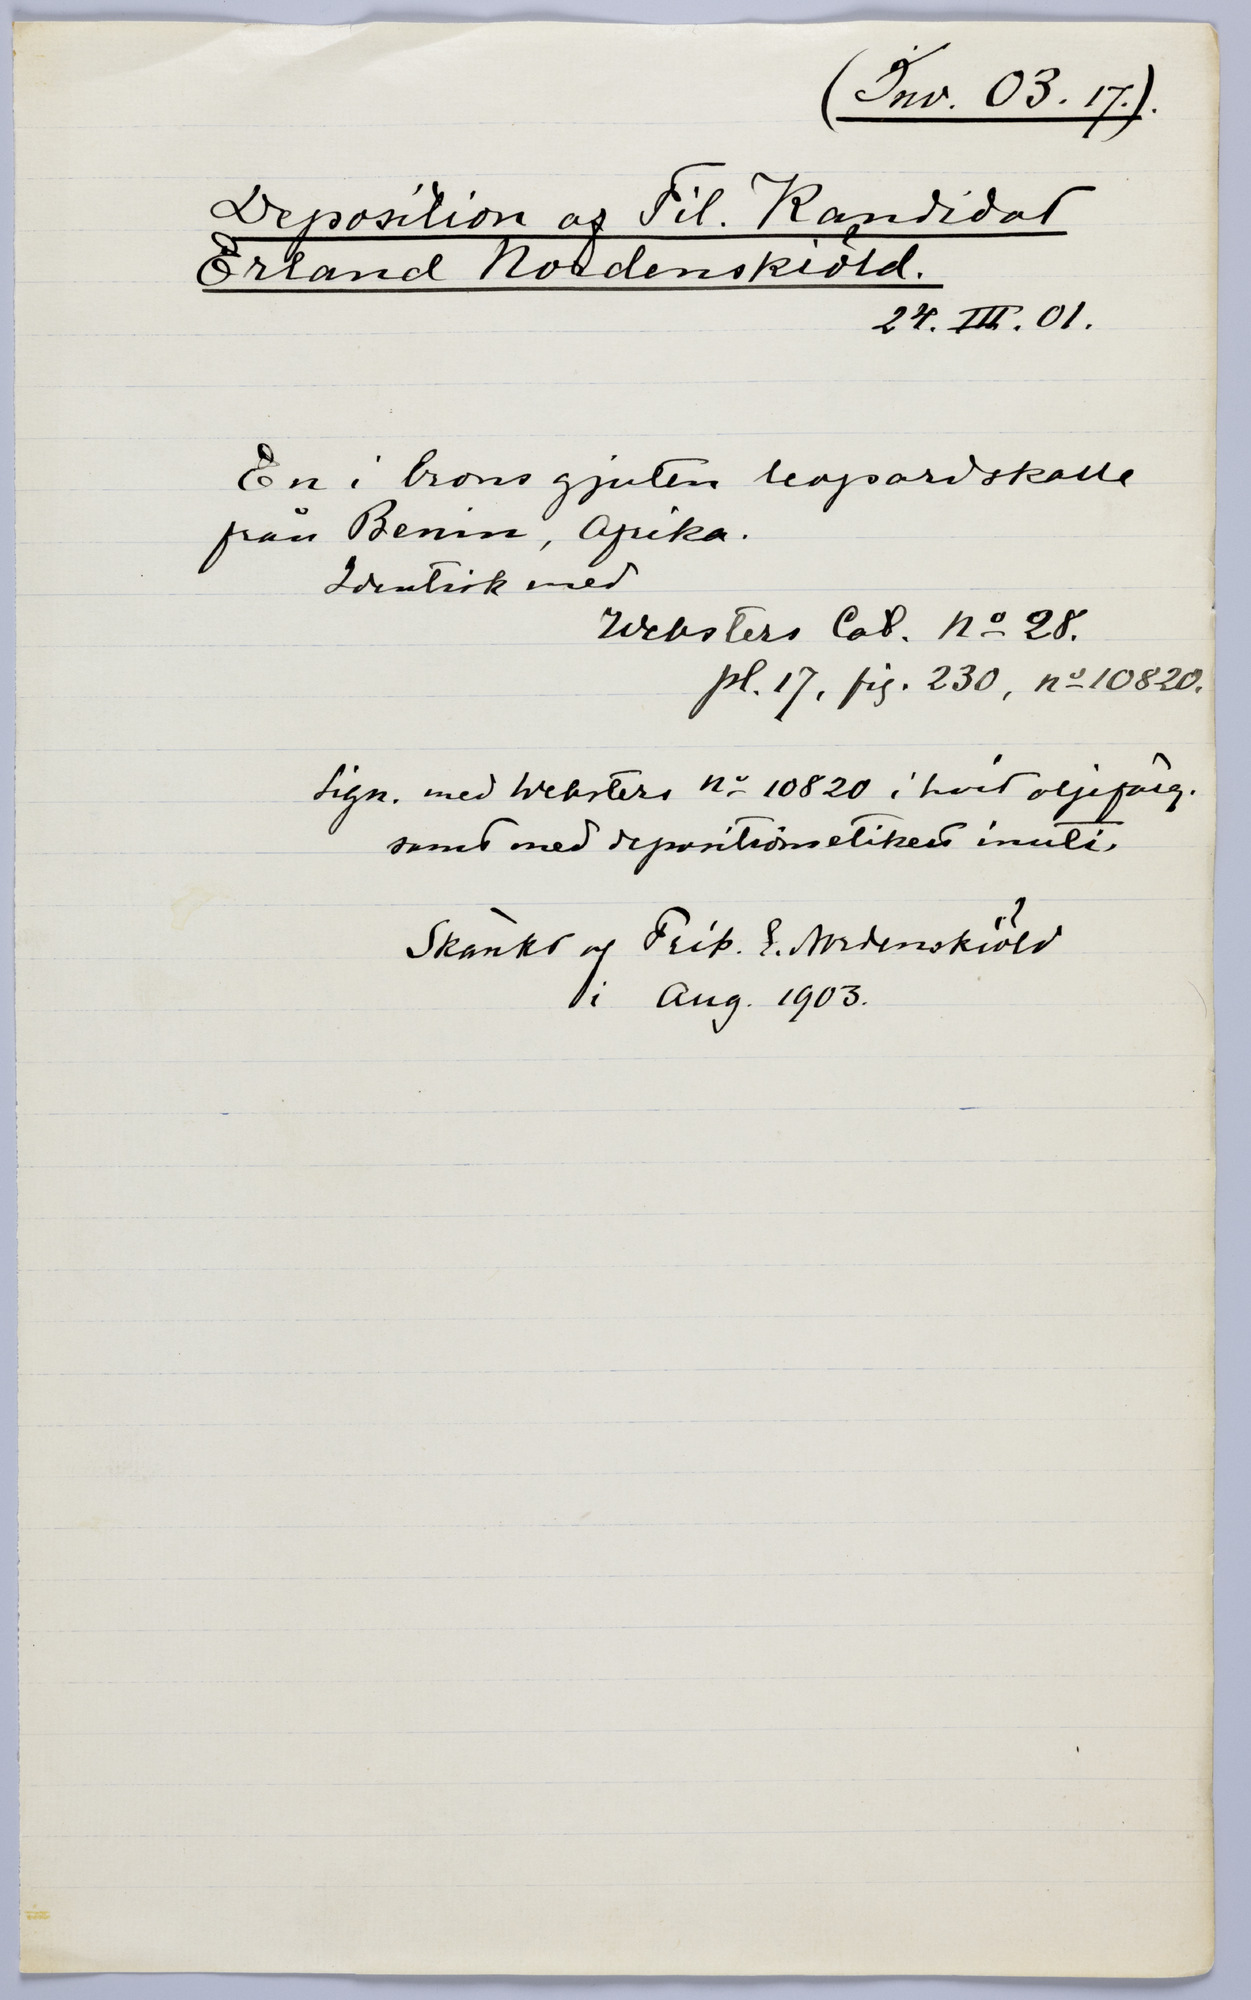 (Inv. 03. 17.).
Deposition af Fil. Kandidat
Erland Nordenskiöld.
24. III. 01.
En i brons gjuten leopardskalle
från Benin, Afrika.
Identisk med
Websters Cat. No 28.
pl. 17, fig. 230, no 10820.
Sign. med Websters No 10820 i hvit oljefärg.
samt med depositionsetikett inuti.
Skänkt af Frih. E. Nordenskiöld
i Aug. 1903.